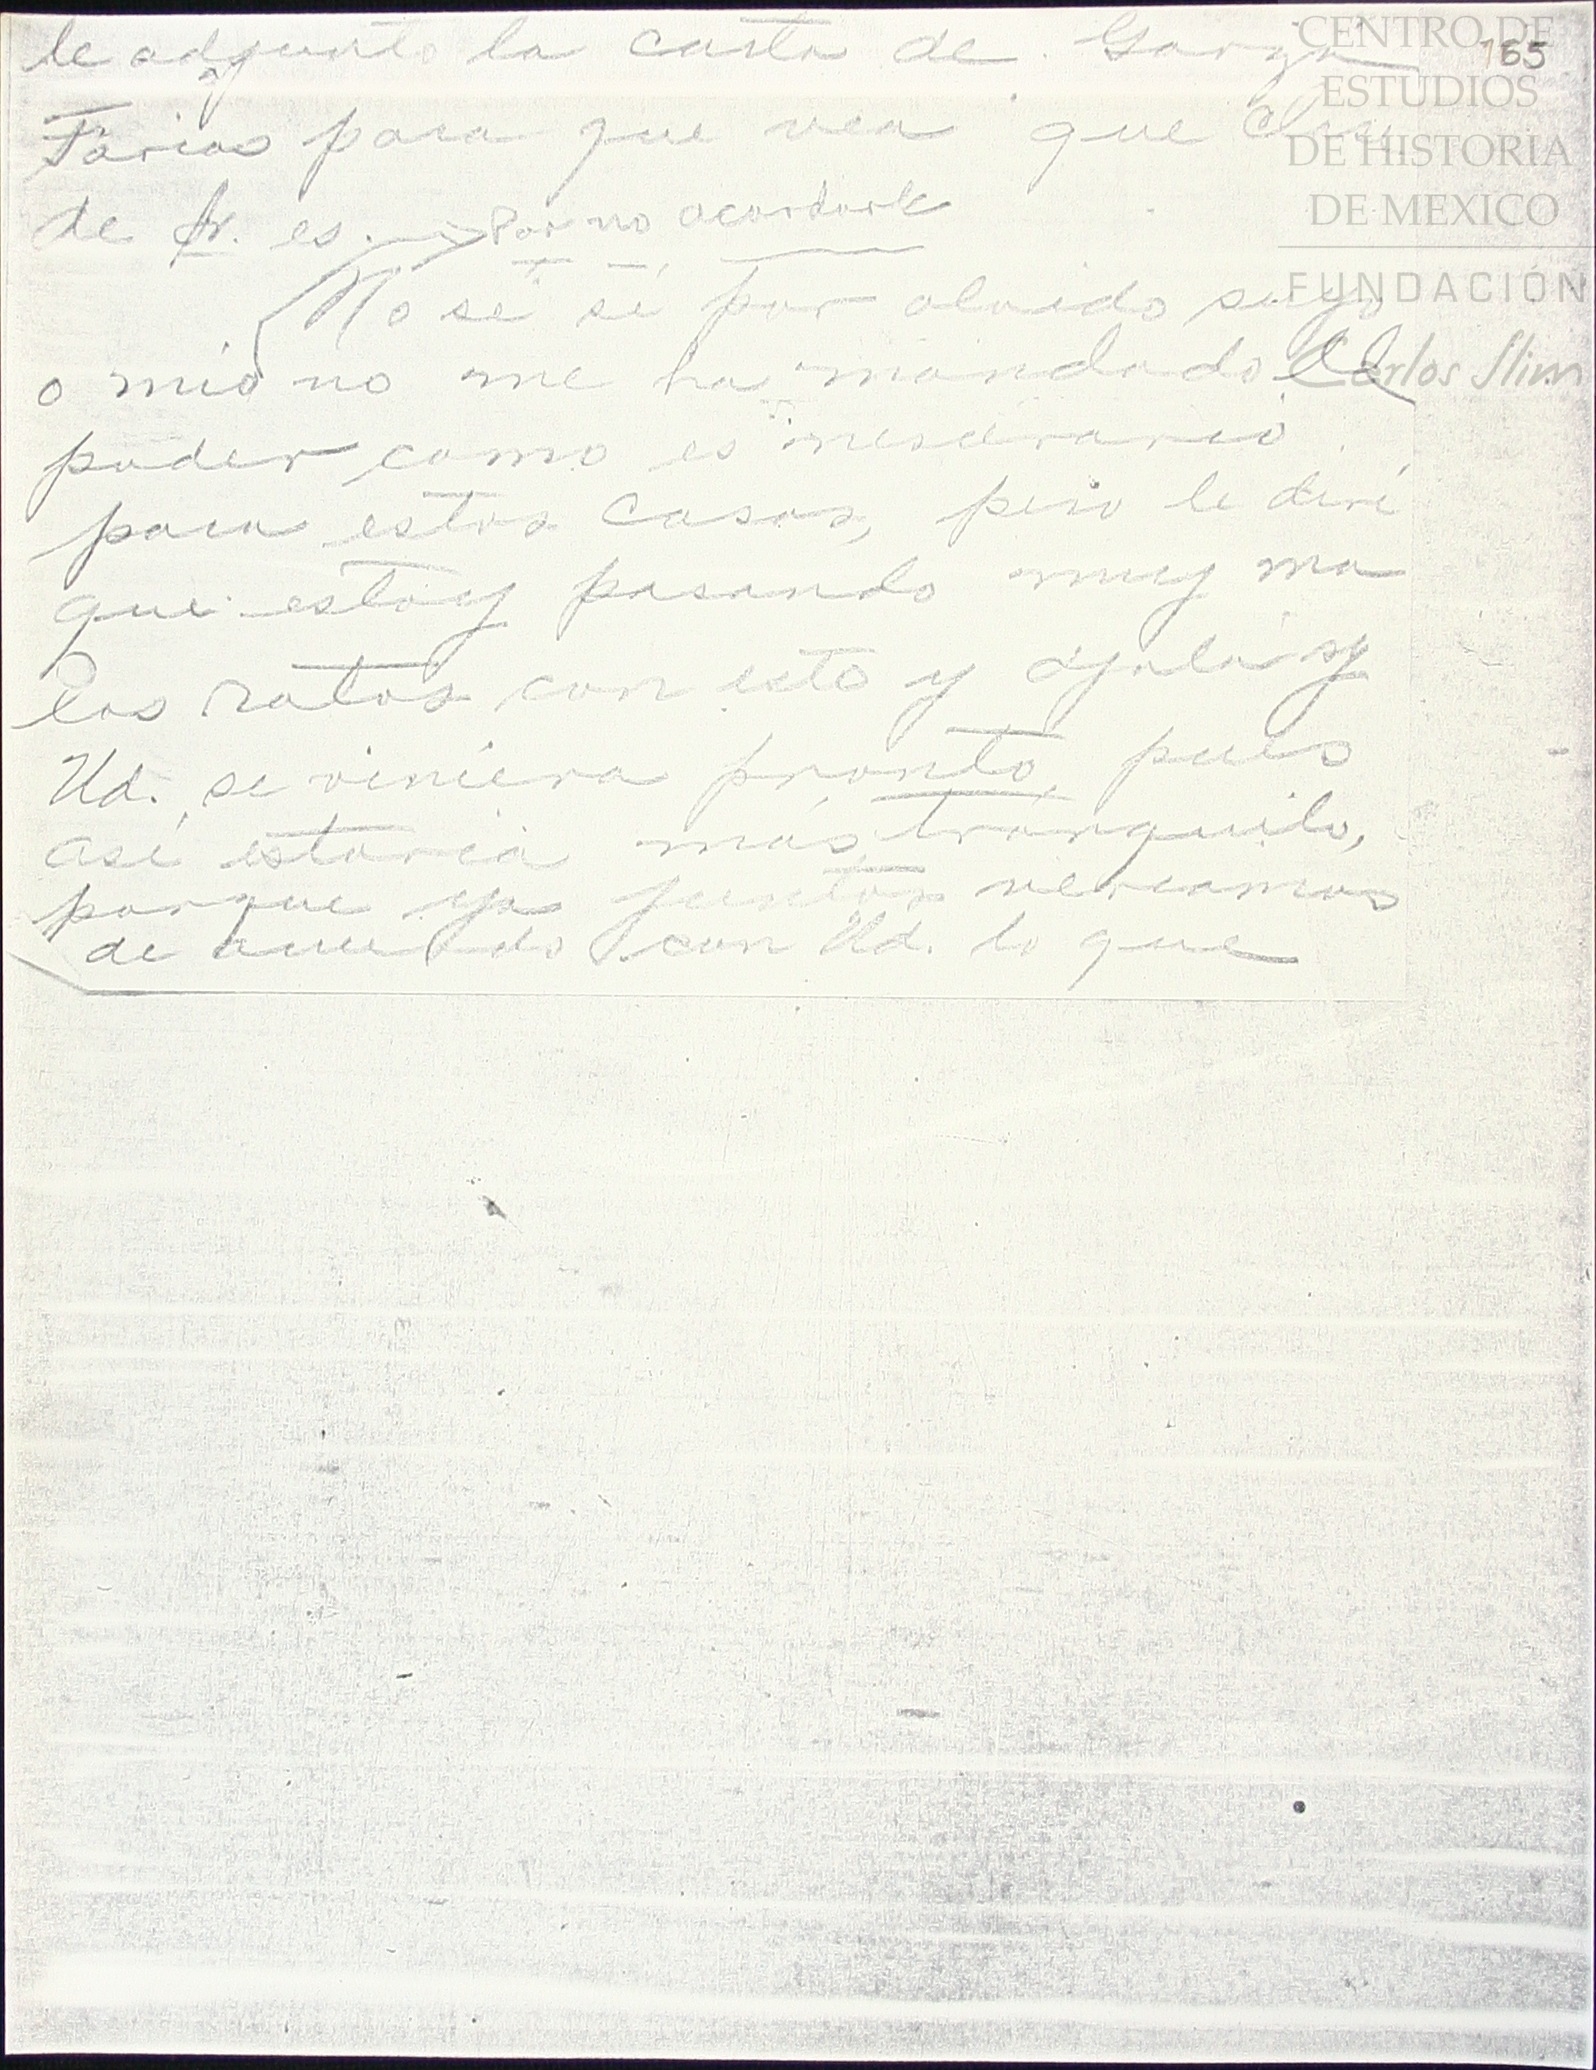 165
CENTRO DE
ESTUDIOS
DE HISTORIA
DE MEXICO
FUNDACIÓN
Carlos Slim
le adjunto la carta de Garza
Farias para que vea que clase
de fr. es. Por no acordarle
No sé sé por olvido suyo
o mío no me ha mandado el
poder como es nesesrario
para estos casos, pero le diré
que estoy pasando muy ma
los ratos con esto y ojalá y
Ud. se viniera pronto, pues
así estaría más tranquilo,
porque ya juntos veríamos
de acuerdo con Ud. lo que